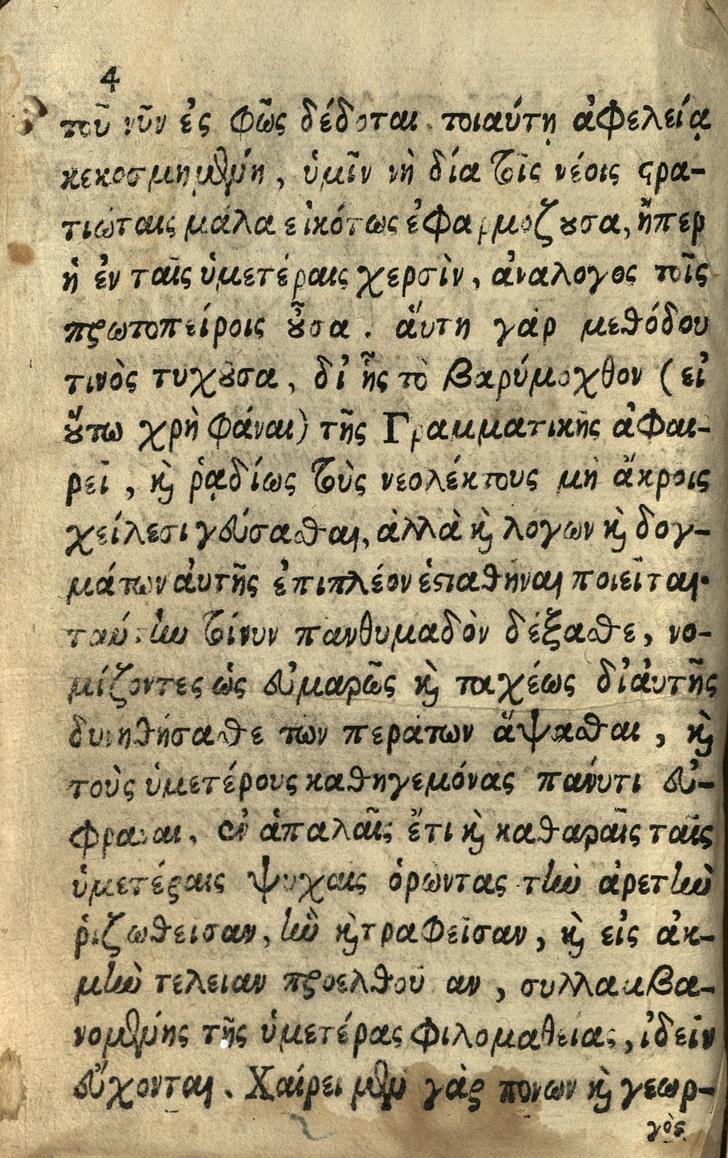 4
τοῦ νῦν ἐς φῶς δέδοται. τοιαύτῃ ἀφελείᾳ
κεκοσμημένη, ὑμῖν νὴ δία τοῖς νέοις στρα-
τιώταις μάλα εἰκότως ἐφαρμόζουσα, ἥπερ
ἡ ἐν ταῖς ὑμετέραις χερσὶν, ἀνάλογος τοῖς
πρωτοπείροις οὖσα. αὕτη γὰρ μεθόδου
τινὸς τυχοῦσα, δι' ἧς τὸ βαρύμοχθον (εἰ
οὕτω χρὴ φάναι) τῆς Γραμματικῆς ἀφαι-
ρεῖ, καὶ ῥαδίως τοὺς νεολέκτους μὴ ἄκροις
χείλεσι γεύσασθαι, ἀλλὰ καὶ λόγων καὶ δογ-
μάτων αὐτῆς ἐπιπλέον ποιεῖται.
ταύτην τοίνυν πανθυμαδὸν δέξασθε, νο-
μίζοντες ὡς εὐμαρῶς καὶ ταχέως δι' αὐτῆς
δυνηθήσασθε των περάτων ἅψασθαι, καὶ
τοὺς ὑμετέρους καθηγεμόνας πάνυτι εὐ-
φρᾶναι. ἐν ἁπαλαῖς ἔτι καὶ καθαραῖς ταῖς
ὑμετέραις ψυχαις ὁρῶντας τὴν ἀρετὴν
ῥιζωθεισαν, ἣν καὶ τραφεῖσαν, καὶ εἰς ἀκ-
μὴν τελειαν προελθοῦσαν, συλλαμβα-
νομένης τῆς ὑμετέρας φιλομαθείας, ἰδεῖν
εὔχονται. Χαίρει μὲν γὰρ πονων καὶ γεωρ-
γὸς